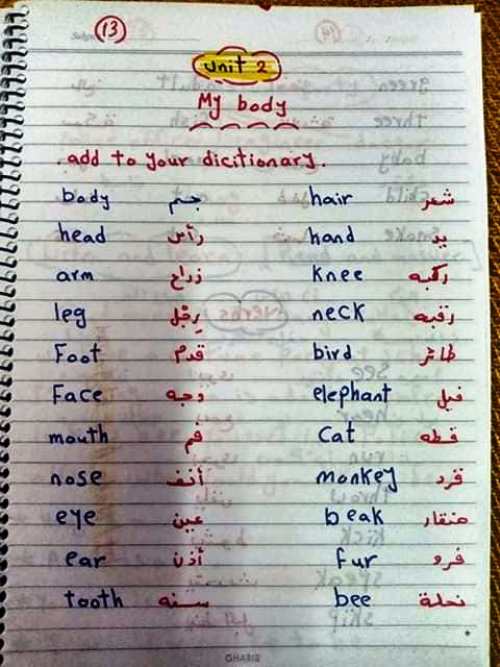 13
Unit 2
My body
. add to your dicitionary.
body جسم hair شعر
head رأس hand يد
arm زراع knee ركبه
leg رِجْل neck رقبه
Foot قدم bird طائر
Face وجه elephant فيل
mouth فم Cat قطه
nose أنف monkey قرد
eye عين beak منقار
ear أذن Fur فرو
tooth سنه bee نحلة
GHARIB